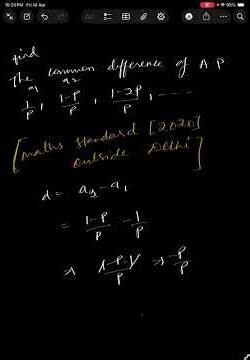 10:25 PM Fri 10 Apr
95%
find
The common difference of A P
a₁ a₂
1/p, (1-p)/p, (1-2p)/p, ----
[maths standard [2020]
outside Delhi]
d = a₂ - a₁
= (1-p)/p - 1/p
⇒ (1-p-1)/p ⇒ -p/p